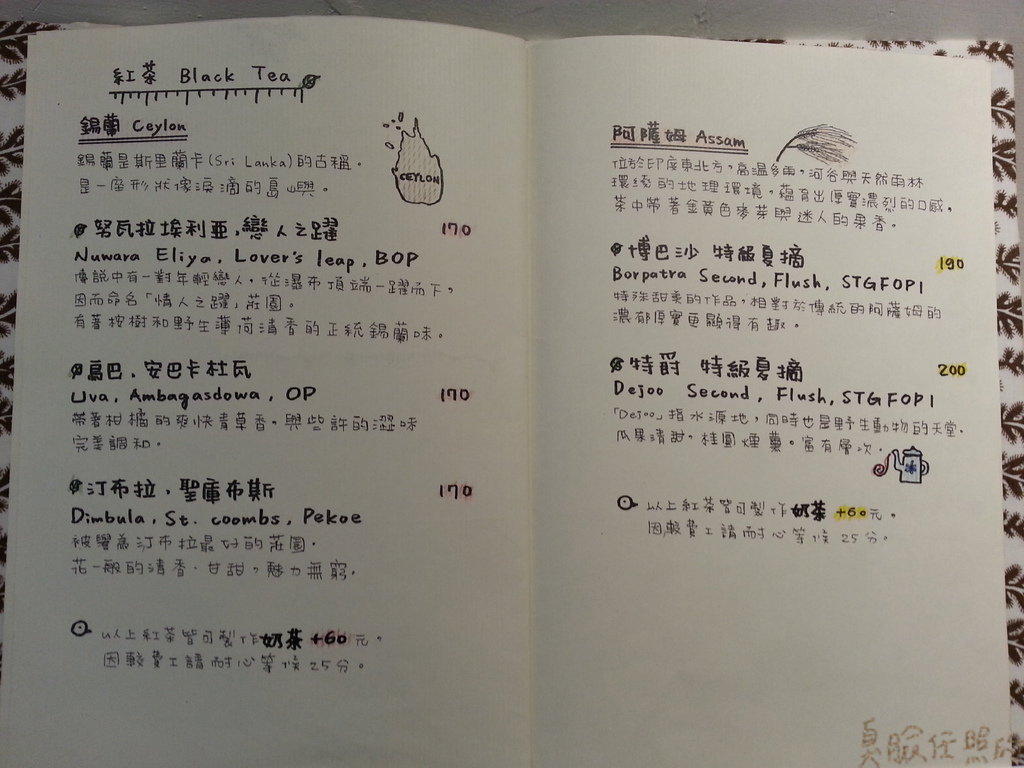 紅茶 Black Tea
錫蘭 Ceylon
CEYLON
錫蘭是斯里蘭卡(Sri Lanka)的古稱。
是一座形狀像淚滴的島嶼。
努瓦拉埃利亞,戀人之躍 170
Nuwara Eliya, Lover's leap, BOP
傳說中有一對年輕戀人,從瀑布頂端一躍而下,
因而命名「情人之躍」莊園。
有著桉樹和野生薄荷清香的正統錫蘭味。
烏巴,安巴卡杜瓦
Uva, Ambagasdowa, OP 170
帶著柑橘的爽快青草香,與些許的澀味
完美調和。
汀布拉,聖庫布斯 170
Dimbula, St. coombs, Pekoe
被譽為汀布拉最好的莊園。
花一般的清香、甘甜,魅力無窮。
以上紅茶皆可製作奶茶+60元。
因較費工請耐心等候25分。
阿薩姆 Assam
位於印度東北方,高溫多雨,河谷與天然雨林
環繞的地理環境,蘊育出厚實濃烈的口感,
茶中帶著金黃色麥芽與迷人的果香。
博巴沙 特級夏摘 190
Borpatra Second, Flush, STGFOP1
特殊甜美的作品,相對於傳統的阿薩姆的
濃郁厚實更顯得有趣。
特爵 特級夏摘 200
Dejoo Second, Flush, STGFOP1
「Dejoo」指水源地,同時也是野生動物的天堂。
瓜果清甜,桂圓煙薰。富有層次。
以上紅茶皆可製作奶茶+60元。
因較費工請耐心等候25分。
臉任照的